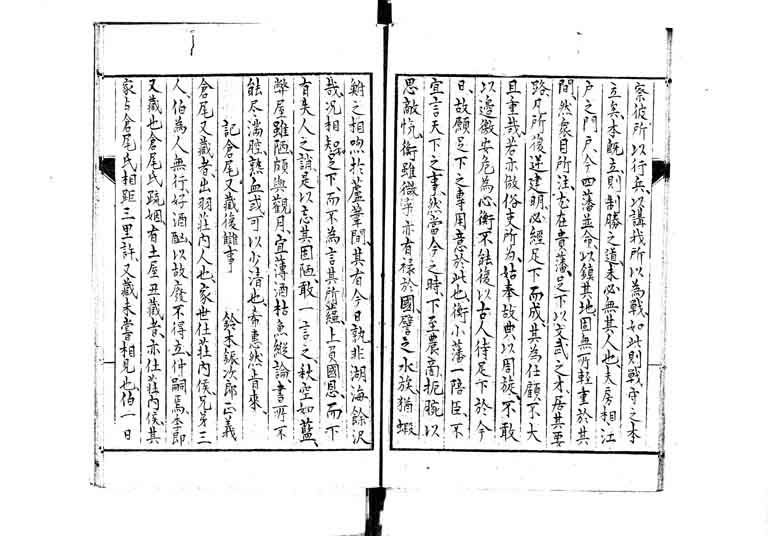 察彼所以行兵、以講我所以為戰、如此則戰守之本
立矣、本既立、則制勝之道、未必無其人也、夫房相、江
戸之門戸、今四藩並命、以鎮其地、固無所軽重於其
間、然衆目所注、尤在貴藩、足下以文武之才、居其要
路、凡所後送建明、必經足下而成、其為任顧不大
且重哉、若亦倣俗吏所為、姑奉故典、以周旋、不敢
以邊徼安危為心、衡不能後以古人待足下於今
日、故願足下之專用意於此也、衡小藩一陪臣、不
宜言天下之事、然當今之時、下至農商、扼腕以
思敵愾、衡雖微末、亦有禄於國、譬之水族、猶蝦
之相呴於蘆葦間、其有今日、孰非湖海餘沢
哉、況相知足下、而不為言其所蘊、上負國恩、而下
有失人之誚、是以忘其固陋、敢一言之、秋空如藍、
弊屋雖陋、頗與觀月宜、薄酒枯魚、縦論書所不
能尽、満腔熱血、或可以少清也、希惠然肯來、
記倉尾又蔵復讎事　鈴木鋠次郎正義
倉尾又蔵者、出羽荘内人也、家世仕荘内侯、兄弟三
人、伯為人無行、好酒色、以故廢不得立、仲嗣焉、季即
又蔵也、倉尾氏疏姻、有土屋丑蔵者、亦仕荘内侯、其
家与倉尾氏相距三里許、又蔵未嘗相見也、伯一日